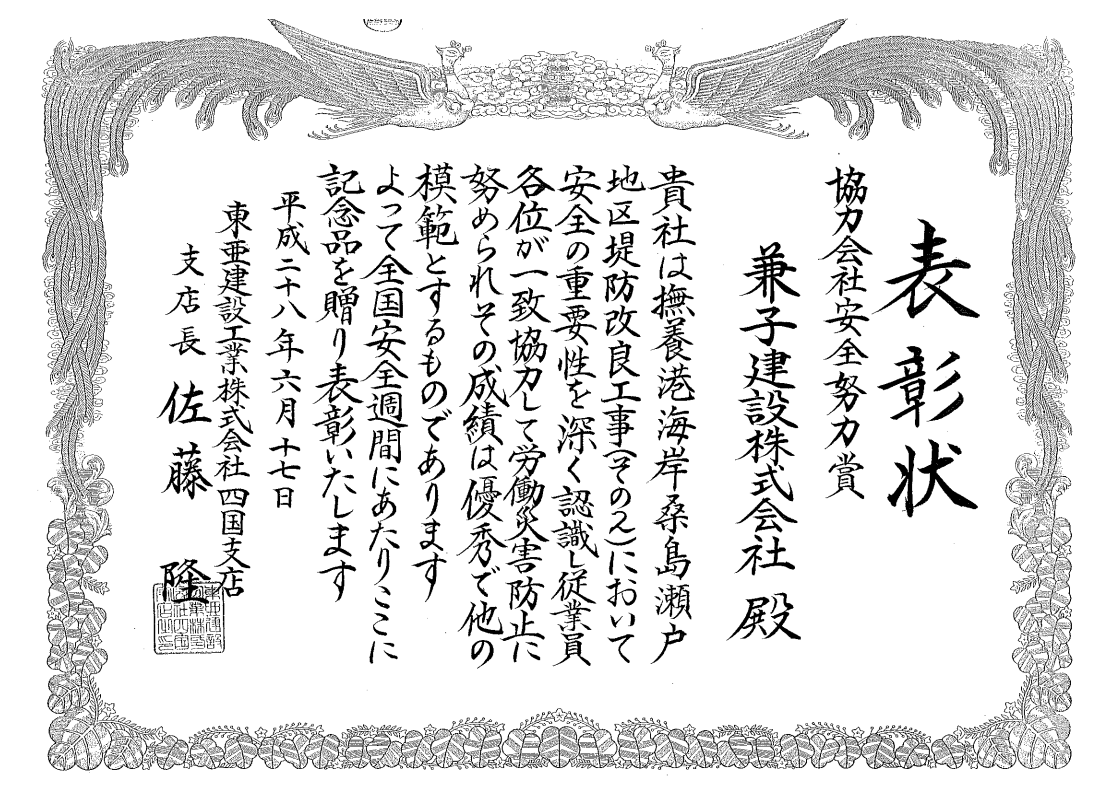 表彰状
協力会社安全努力賞
兼子建設株式会社 殿
貴社は撫養港海岸桑島瀬戸
地区堤防改良工事(その2)において
安全の重要性を深く認識し従業員
各位が一致協力して労働災害防止に
努められその成績は優秀で他の
模範とするものであります
よって全国安全週間にあたりここに
記念品を贈り表彰いたします
平成二十八年六月十七日
東亜建設工業株式会社四国支店
支店長 佐藤 隆